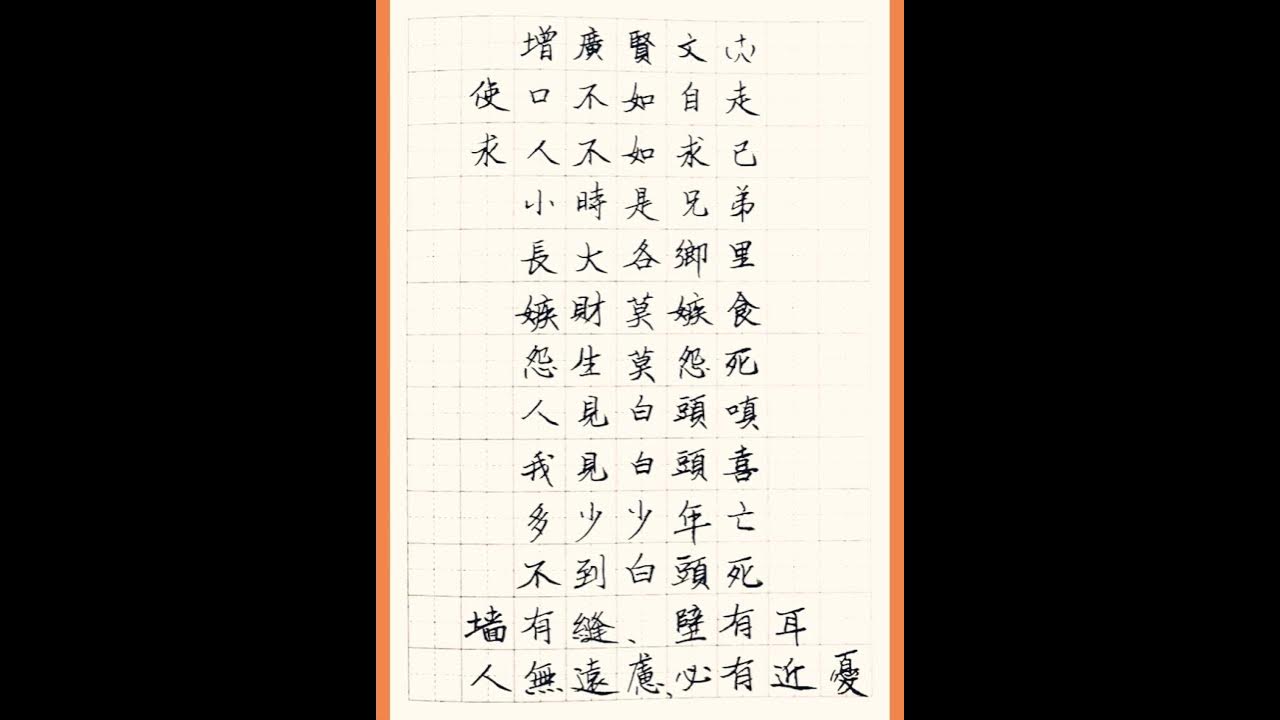 增廣賢文(十八)
使口不如自走
求人不如求己
小時是兄弟
長大各鄉里
嫉財莫嫉食
怨生莫怨死
人見白頭嗔
我見白頭喜
多少少年亡
不到白頭死
墙有缝、壁有耳
人無遠慮,必有近憂